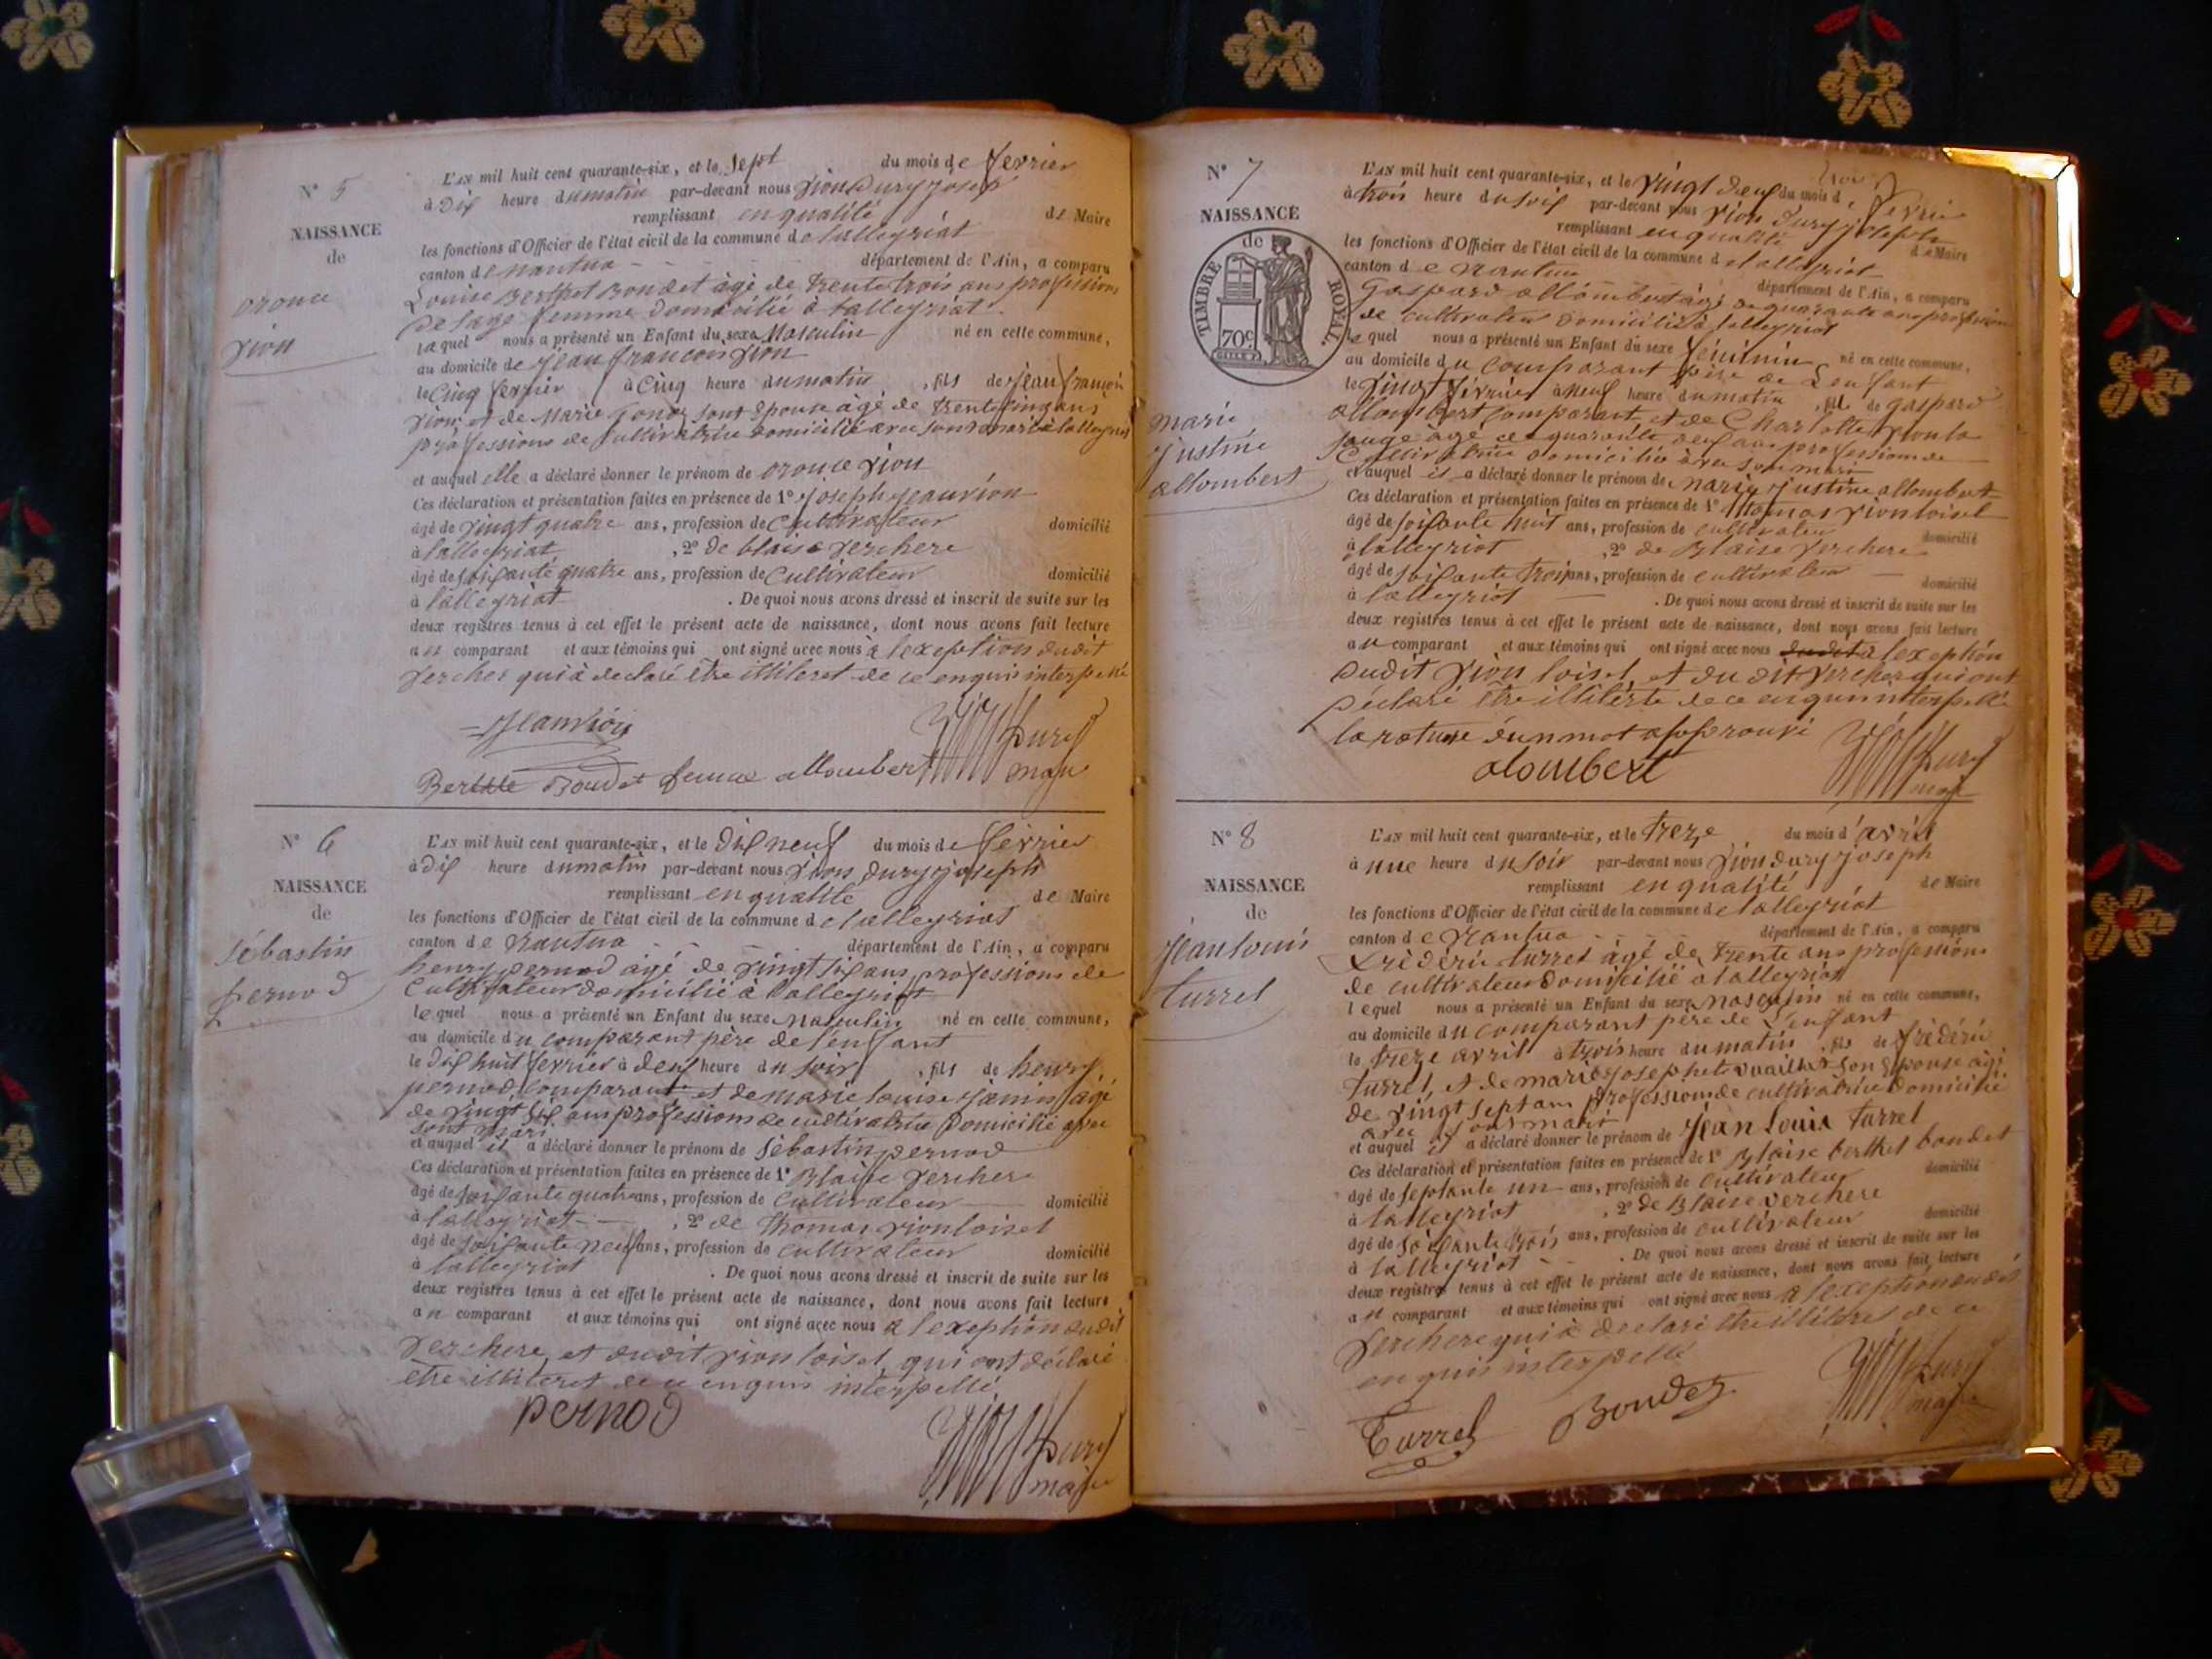 N° 5
NAISSANCE
de
oronce
vion
L'AN mil huit cent quarante-six, et le sept du mois de fevrier
à dix heure du matin par-devant nous vion dury josep
remplissant en qualité de Maire
les fonctions d'Officier de l'état civil de la commune de lalleyriat
canton de nantua département de l'Ain, a comparu
Louise Berthet Bondet âgé de trente trois ans professions
de sage femme domicilié à lalleyriat
laquel nous a présenté un Enfant du sexe Masculin né en cette commune,
au domicile de jean francois vion
le Cinq fevrier à Cinq heure du matin, fils de jean francois
vion et de Marie sont epouse âgé de trente cinq ans
professions de cultivatrice domicilié avec sont mari à lalleyriat
et auquel elle a déclaré donner le prénom de oronce vion
Ces déclaration et présentation faites en présence de 1° joseph jean vion
âgé de vingt quatre ans, profession de Cultivateur domicilié
à lalleyriat, 2° de blaise verchere
âgé de soixante quatre ans, profession de Cultivateur domicilié
à lalleyriat. De quoi nous avons dressé et inscrit de suite sur les
deux registres tenus à cet effet le présent acte de naissance, dont nous avons fait lecture
au comparant et aux témoins qui ont signé avec nous a lexeption dudit
vercher qui à declaré être illiteret de ce enquis interpellé
Jean vion
Berthet Boudet femme allombert
Dury maire
N° 6
NAISSANCE
de
sébastin
pernod
L'AN mil huit cent quarante-six, et le dix neuf du mois de fevrier
à dix heure du matin par-devant nous vion dury joseph
remplissant en qualité de Maire
les fonctions d'Officier de l'état civil de la commune de lalleyriat
canton de nantua département de l'Ain, a comparu
henry pernod âgé de vingt six ans professions de
Cultivateur domicilié à lalleyriat
lequel nous a présenté un Enfant du sexe Masculin né en cette commune,
au domicile du comparant père de lenfant
le dix huit fevrier à deux heure du soir, fils de henry
pernod comparant et de marie louise âgé
de vingt six ans professions de cultivatrice domicilié avec
sont mari
et auquel il a déclaré donner le prénom de sébastin pernod
Ces déclaration et présentation faites en présence de 1° Blaise vercher
âgé de soixante quatre ans, profession de Cultivateur domicilié
à lalleyriat, 2° de thomas vion loisel
âgé de soixante neuf ans, profession de cultivateur domicilié
à lalleyriat. De quoi nous avons dressé et inscrit de suite sur les
deux registres tenus à cet effet le présent acte de naissance, dont nous avons fait lecture
au comparant et aux témoins qui ont signé avec nous a lexeption dudit
verchere et dudit vion loisel qui ont déclaré
être illiteret de ce enquis interpellé
pernod
Dury maire
N° 7
NAISSANCE
de
TIMBRE ROYAL
70c.
marie
justine
allombert
L'AN mil huit cent quarante-six, et le vingt deux du mois de fevrier
à trois heure du soir par-devant nous vion dury joseph
remplissant en qualité de Maire
les fonctions d'Officier de l'état civil de la commune de lalleyriat
canton de nantua département de l'Ain, a comparu
gaspard allombert âgé de quarante ans profession
de cultivateur domicilié à lalleyriat
lequel nous a présenté un Enfant du sexe féminin né en cette commune,
au domicile du comparant père de lenfant
le vingt fevrier à neuf heure du matin, fille de gaspard
allombert comparant, et de Charlotte vion la
âgé de quarante deux ans profession de
cultivatrice domicilié avec son mari
et auquel il a déclaré donner le prénom de marie justine allombert
Ces déclaration et présentation faites en présence de 1° thomas vion loisel
âgé de soixante huit ans, profession de cultivateur domicilié
à lalleyriat, 2° de Blaise verchere
âgé de soixante trois ans, profession de cultivateur domicilié
à lalleyriat. De quoi nous avons dressé et inscrit de suite sur les
deux registres tenus à cet effet le présent acte de naissance, dont nous avons fait lecture
au comparant et aux témoins qui ont signé avec nous a lexeption
dudit vion loisel, et du dit vercher qui ont
déclaré être illiterte de ce enquis interpellé
la rature d'un mot approuvé
alombert
Dury maire
N° 8
NAISSANCE
de
jean louis
turrel
L'AN mil huit cent quarante-six, et le treze du mois d'avril
à une heure du soir par-devant nous vion dury joseph
remplissant en qualité de Maire
les fonctions d'Officier de l'état civil de la commune de lalleyriat
canton de nantua département de l'Ain, a comparu
frédéric turrel âgé de trente ans professions
de cultivateur domicilié à lalleyriat
lequel nous a présenté un Enfant du sexe masculin né en cette commune,
au domicile du comparant père de l'enfant
le treze avril à trois heure du matin, fils de frédéric
turrel, et de marie josephete son épouse âgé
de vingt sept ans profession de cultivatrice domicilié
avec sont mari
et auquel il a déclaré donner le prénom de jean Louis turrel
Ces déclaration et présentation faites en présence de 1° Blaise berthet bondet
âgé de septante un ans, profession de cultivateur domicilié
à lalleyriat, 2° de Blaise verchere
âgé de soixante trois ans, profession de cultivateur domicilié
à lalleyriat. De quoi nous avons dressé et inscrit de suite sur les
deux registres tenus à cet effet le présent acte de naissance, dont nous avons fait lecture
au comparant et aux témoins qui ont signé avec nous a lexeption dudit
verchere qui à declaré être illiteret de ce
enquis interpellé
Turrel Boudez
Dury maire